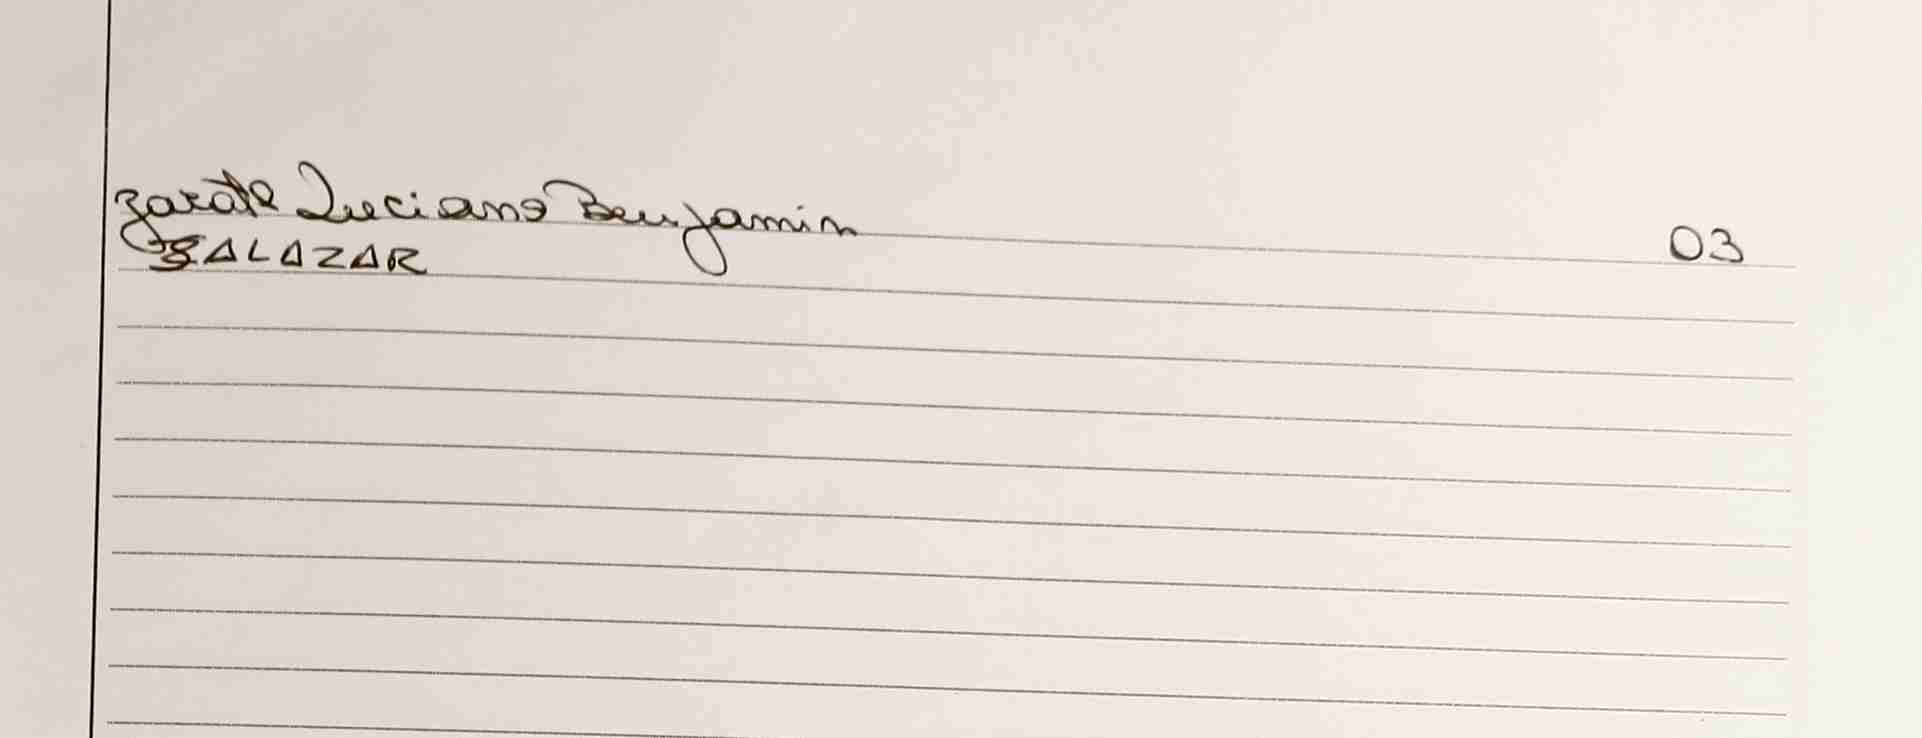 Zarate Luciano Benjamin 03
SALAZAR